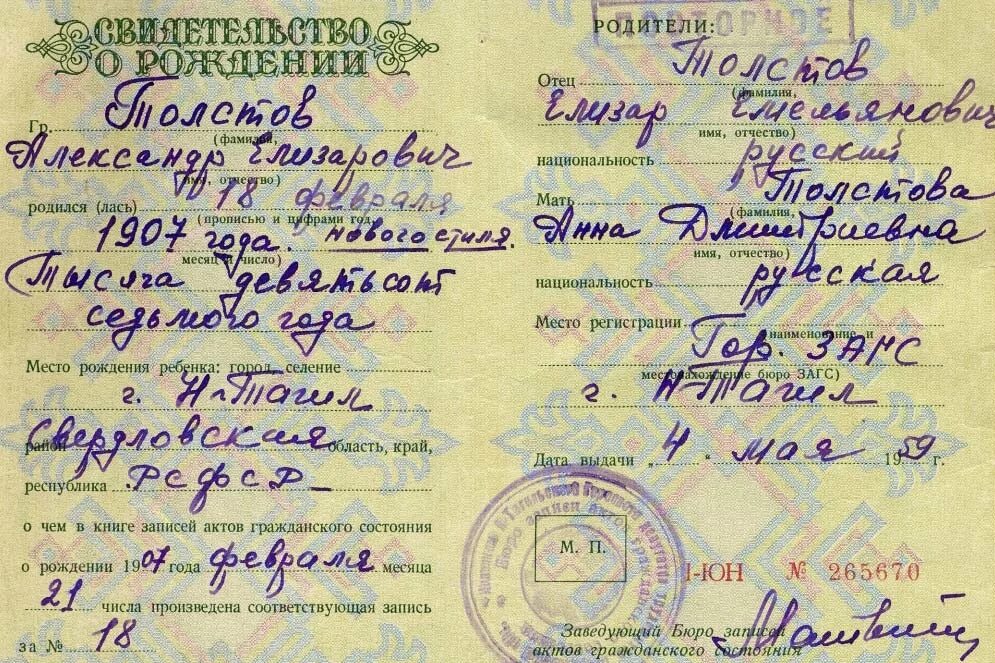 СВИДЕТЕЛЬСТВО
О РОЖДЕНИИ
Гр. Толстов
(фамилия,
Александр Елизарович
имя, отчество)
родился (лась) 18 февраля
(прописью и цифрами год,
1907 года. нового стиля.
месяц и число)
Тысяча девятьсот
седьмого года
Место рождения ребенка: город, селение
г. Н-Тагил
район Свердловская область, край,
республика РСФСР
о чем в книге записей актов гражданского состояния
о рождении 1907 года февраля месяца
21 числа произведена соответствующая запись
за № 18
ПОВТОРНОЕ
РОДИТЕЛИ:
Отец Толстов
(фамилия,
Елизар Емельянович
имя, отчество)
национальность русский
Мать Толстова
(фамилия,
Анна Дмитриевна
имя, отчество)
национальность русская
Место регистрации Гор. ЗАГС
(наименование и
местонахождение бюро ЗАГС)
г. Н-Тагил
Дата выдачи „4" мая 1959 г.
М. П.
I-ЮН № 265670
Заведующий Бюро записи
актов гражданского состояния